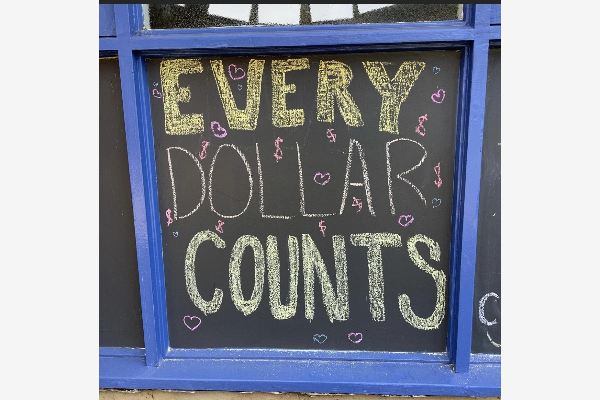 EVERY
DOLLAR
COUNTS